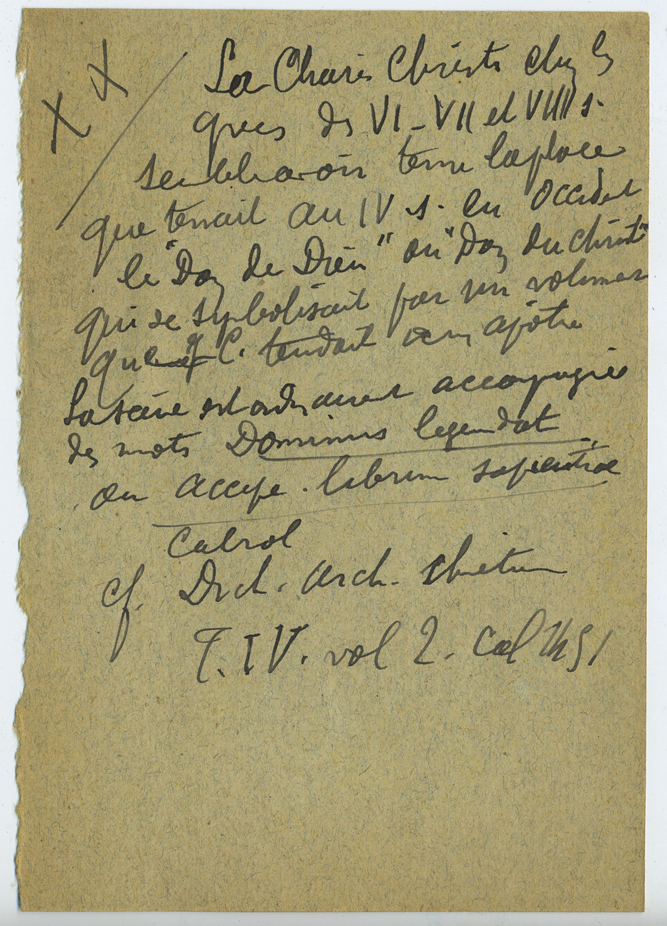 XX
La Charis Christi chez les
grecs des VI - VII et VIII s.
semble avoir tenu la place
que tenait au IV s. en Occident
le "Don de Dieu" ou "Don du Christ"
qui se symbolisait par un volumen
que C. tendait à un apôtre
La scène est ordinairement accompagnée
des mots Dominus legem dat
ou accipe librum sapientiae
Cabrol
cf. Dict. arch. chrétienn
T. IV. vol 2. Col